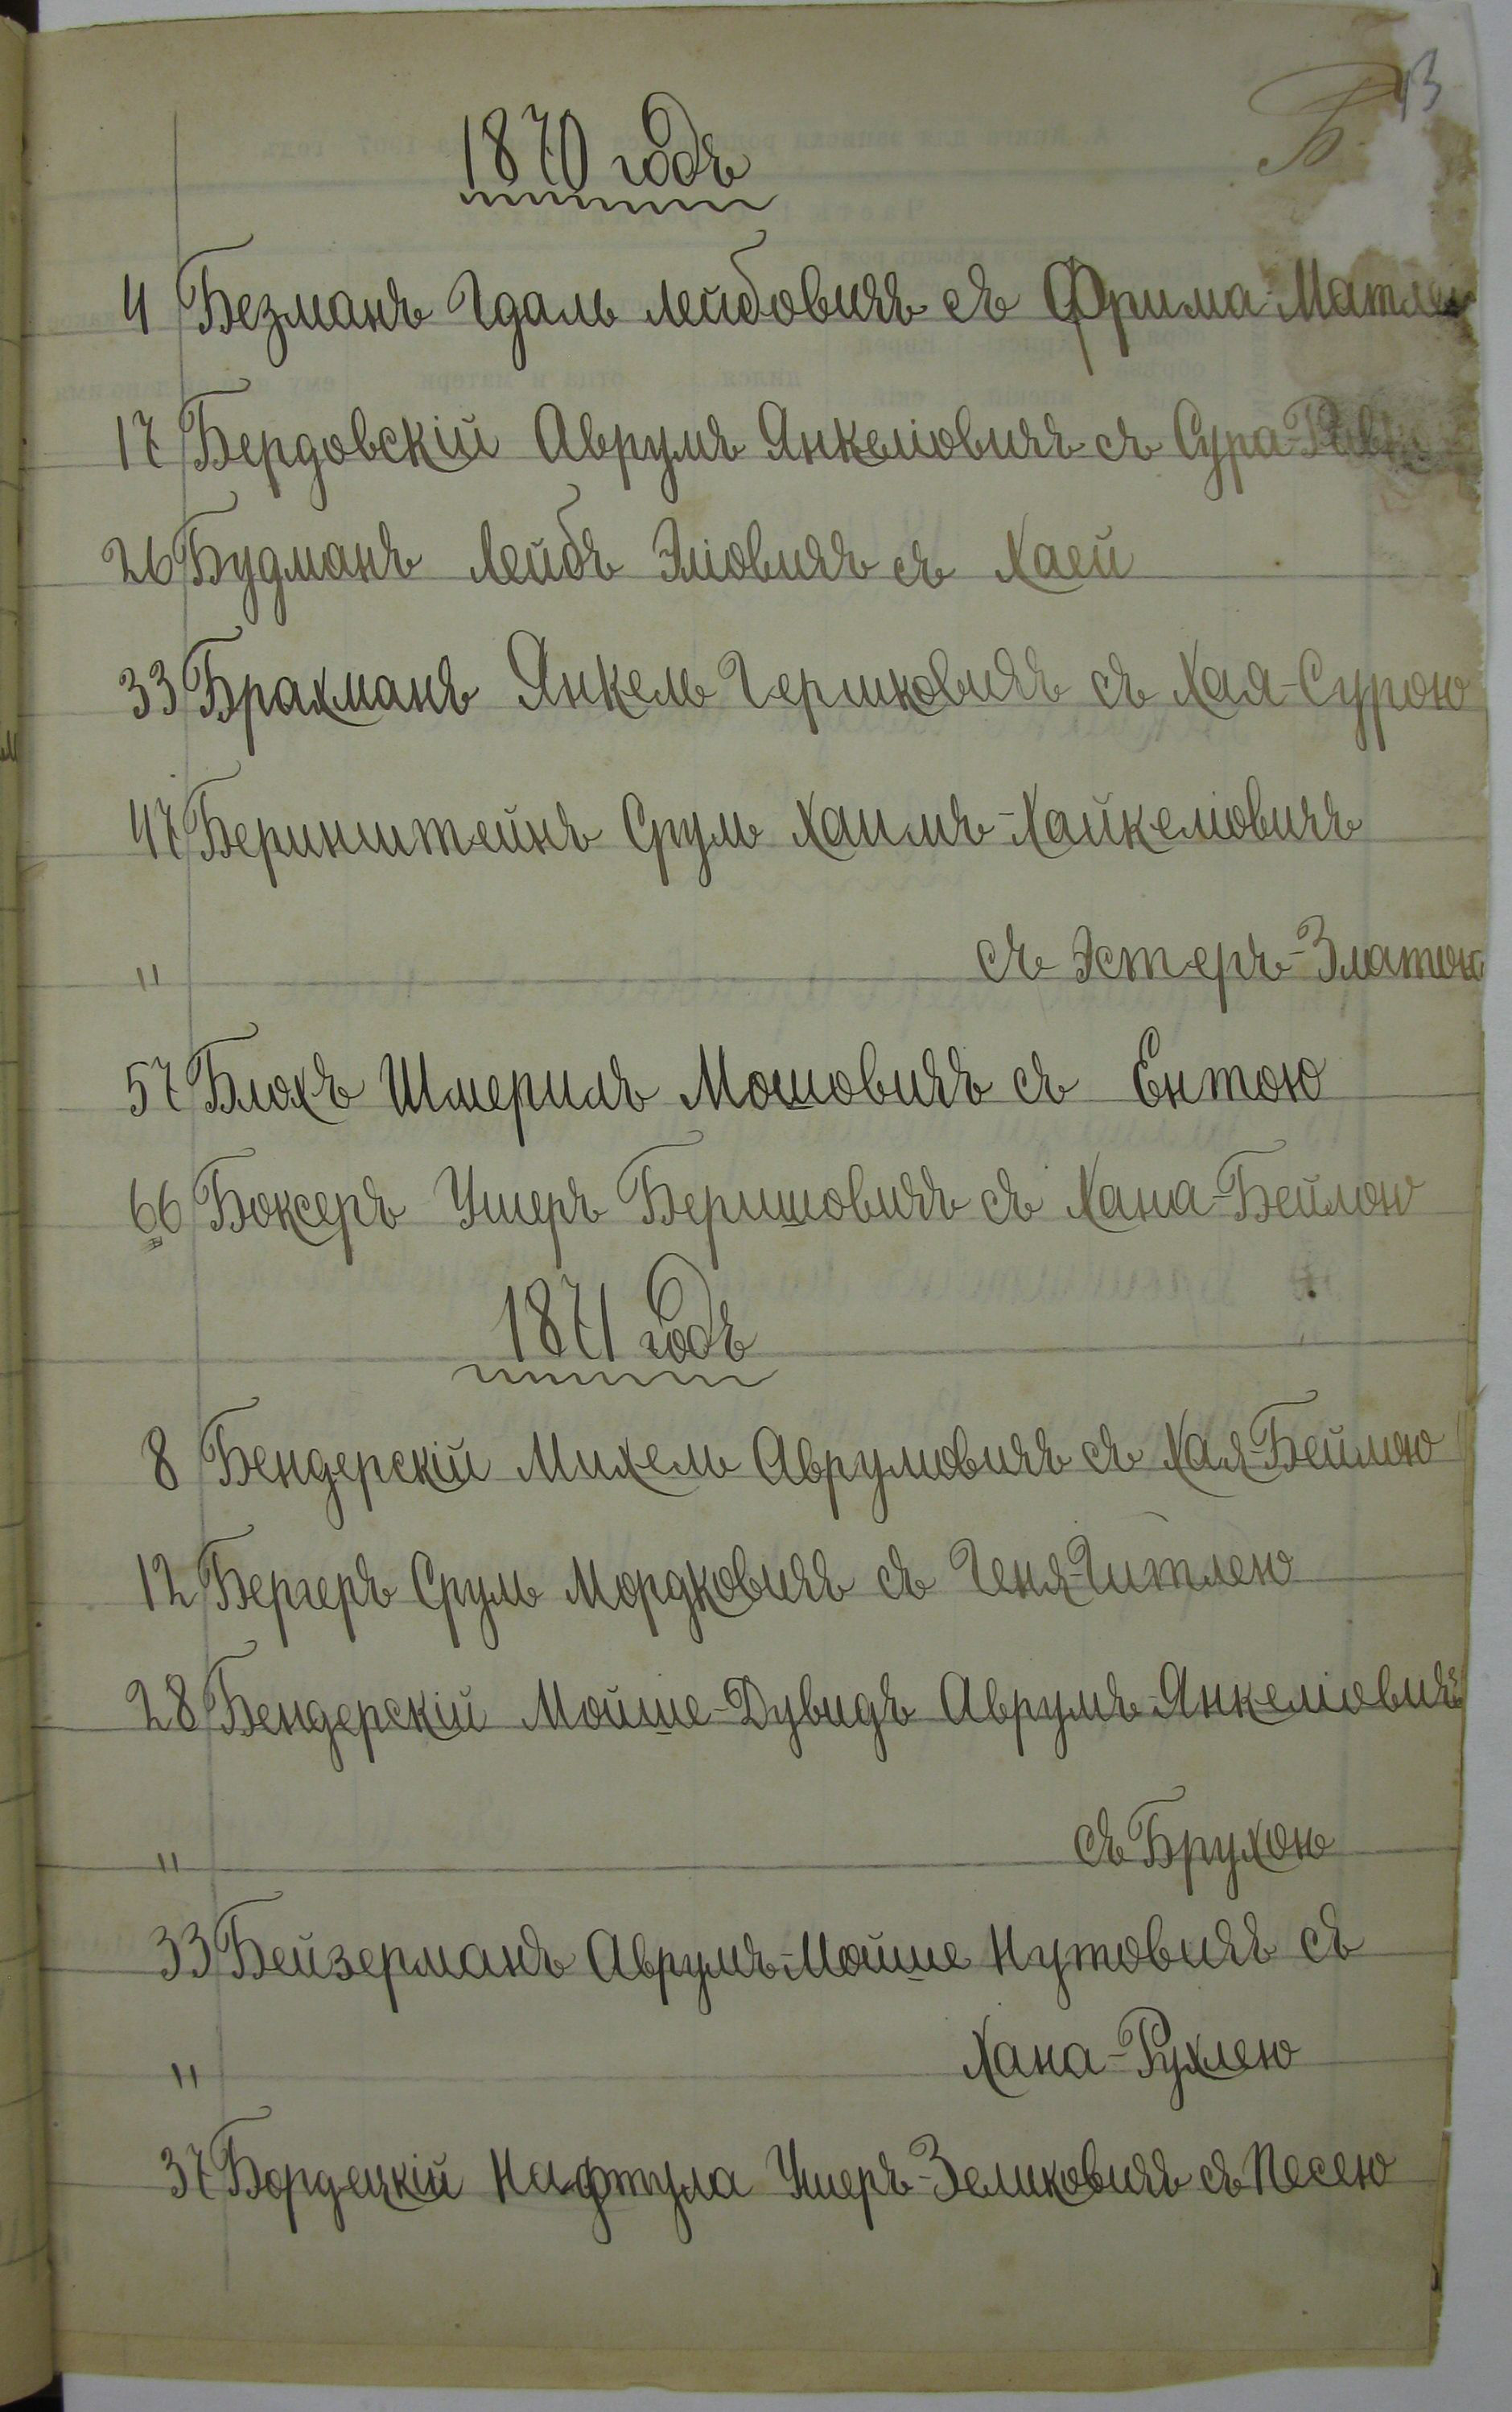 Б. 13
1870 годъ
4 Безманъ Гдаль Лейбовичъ съ Фрима-Матлею
17 Бердовскій Аврумъ Янкеліовичъ съ Сура
26 Будманъ Лейбъ Эліовичъ съ Хаей
33 Брахманъ Янкель Гершковичъ съ Хая-Сурою
47 Беринштейнъ Сруль Хаимъ-Хайкеліовичъ
" съ Эстеръ-Златою
57 Блохъ Шмериль Мошовичъ съ Ентою
66 Боксеръ Ушеръ Беришовичъ съ Хана-Бейлою
1871 годъ
8 Бендерскій Михель Аврумовичъ съ Хая-Бейлою
12 Бергеръ Сруль Мордковичъ съ Геня-Гитлею
28 Бендерскій Мойше-Дувидъ Аврумъ-Янкеліовичъ
" съ Брухою
33 Бейзерманъ Аврумъ-Мойше Нутовичъ съ
" Хана-Рухлею
37 Бордецкій Нафтула Ушеръ-Зелиховичъ съ Песею